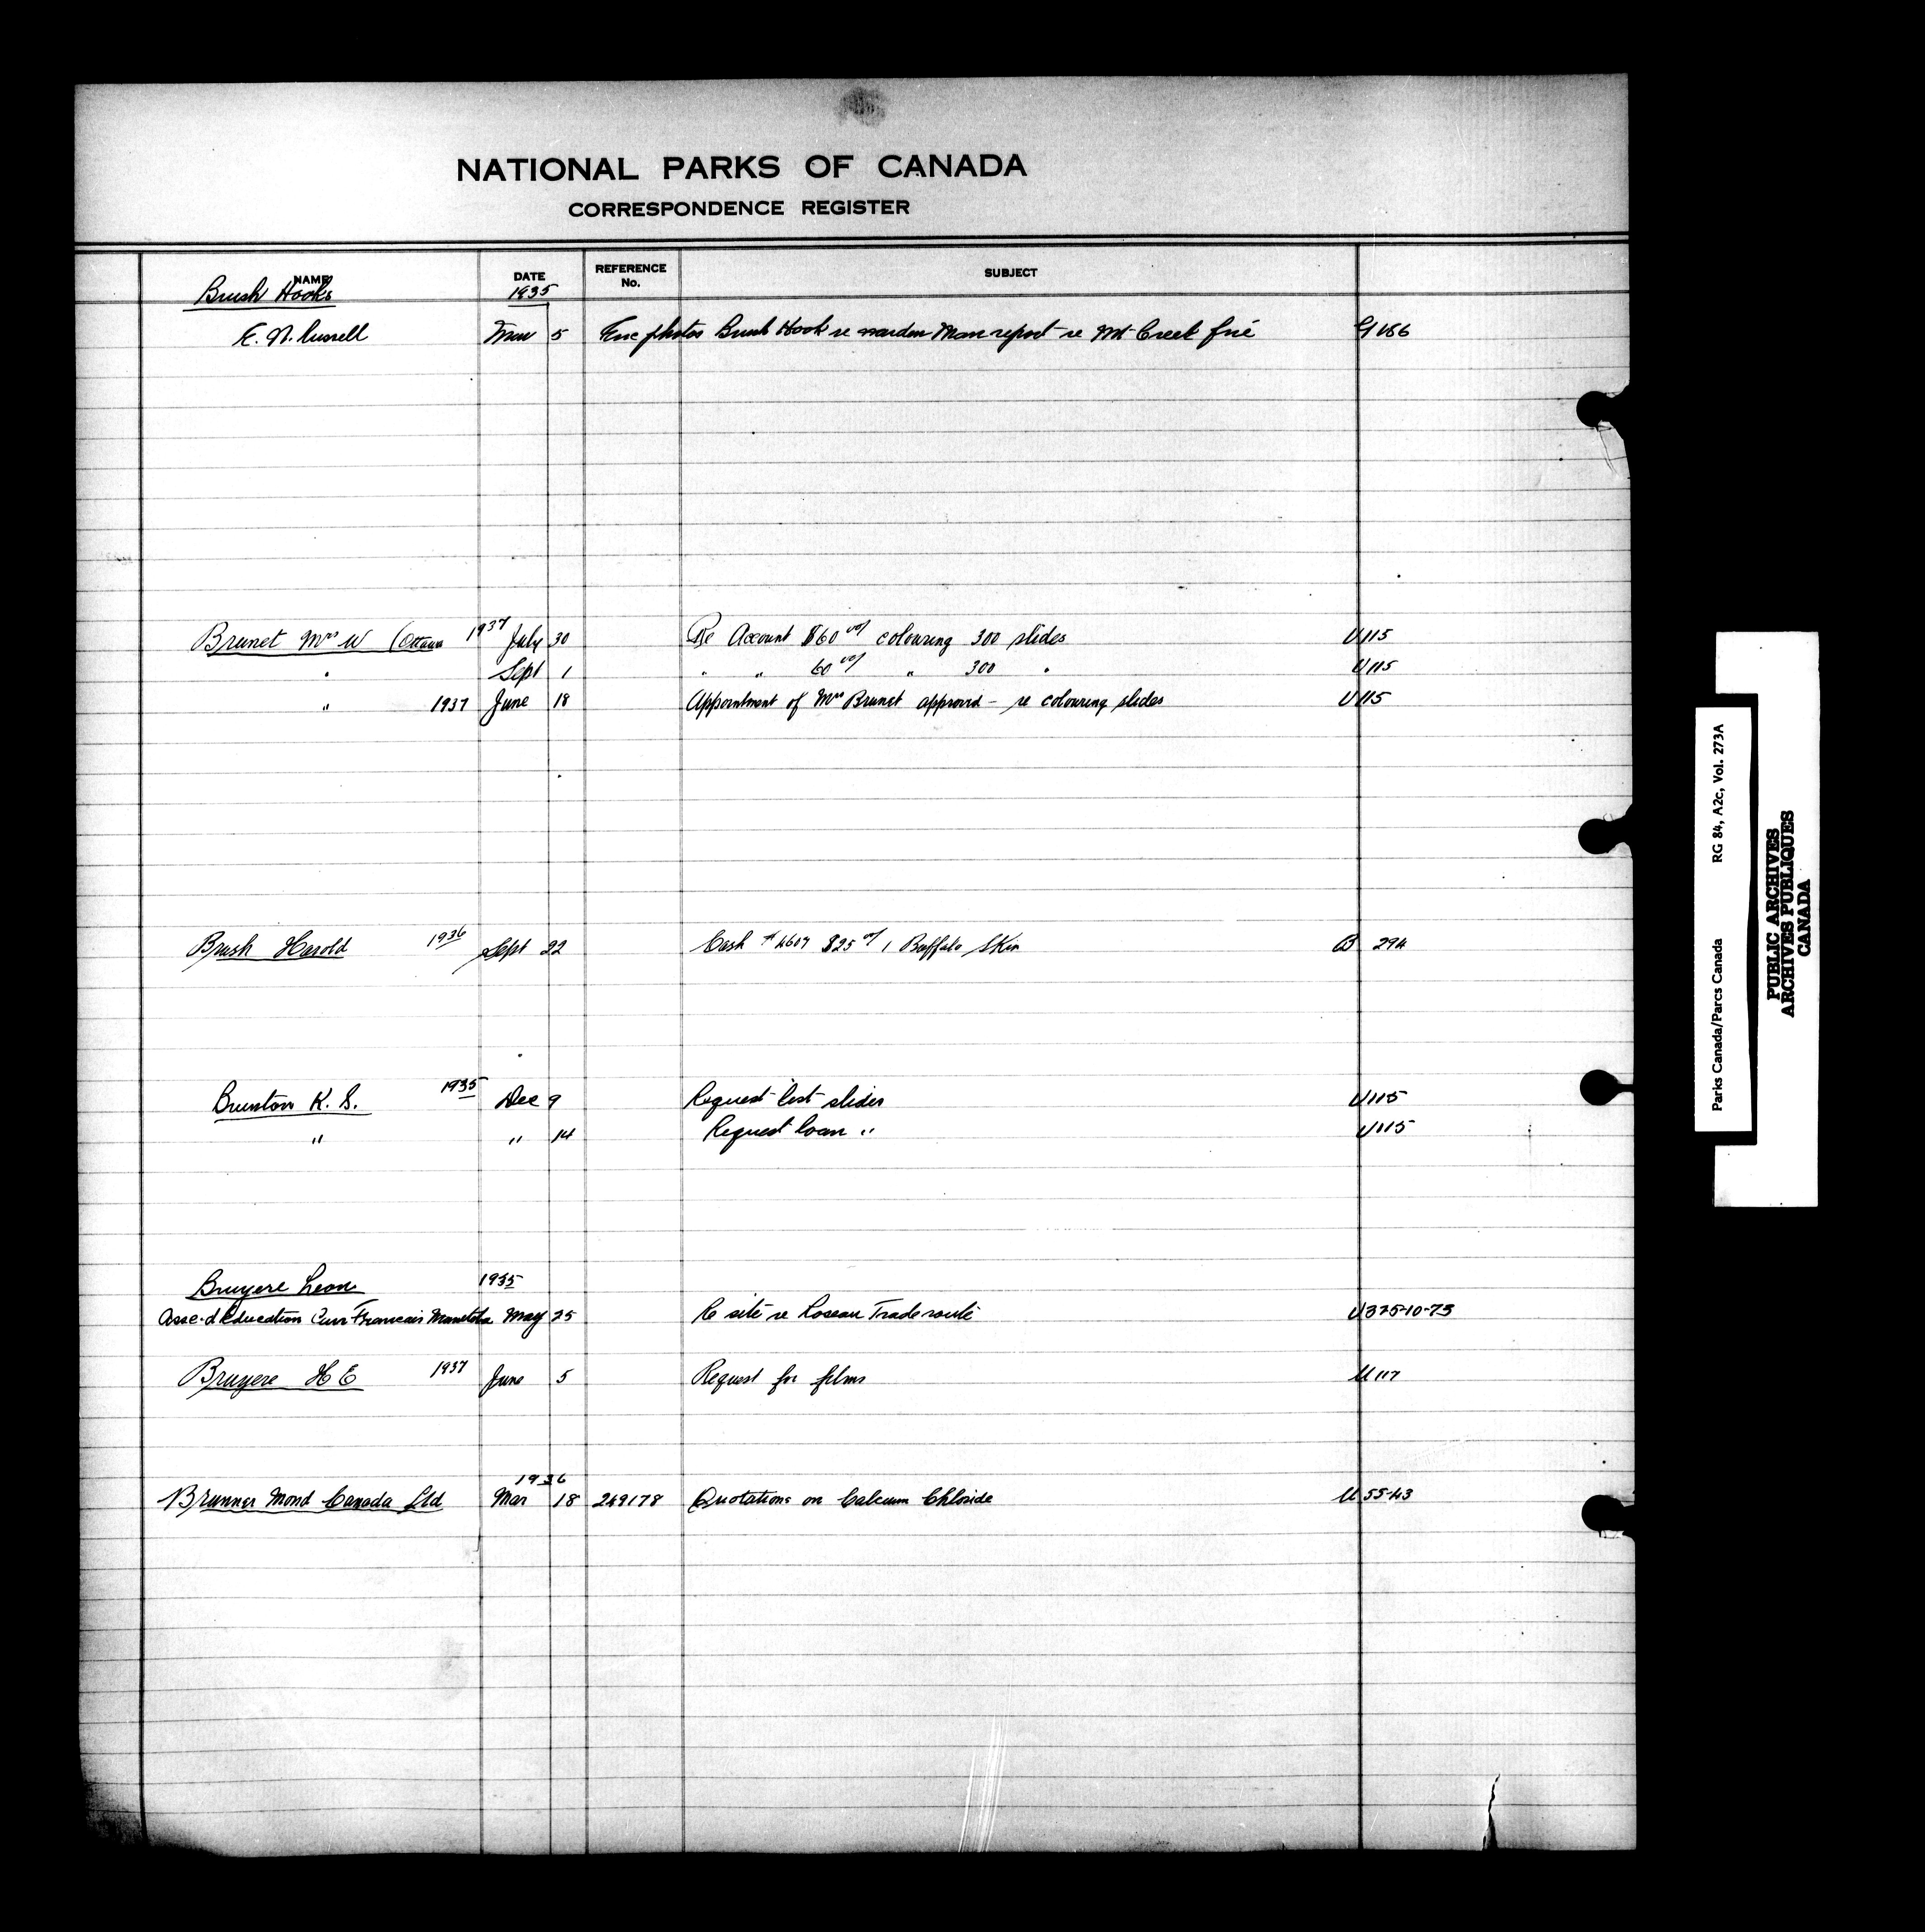 NATIONAL PARKS OF CANADA
CORRESPONDENCE REGISTER
NAME DATE REFERENCE No. SUBJECT
Brush Hooks 1935
E. N. Russell Mar 5 Enc photos Brush Hook re warden Man report re Mt Creek fire G 186
Brunet Mrs W (Ottawa 1937 July 30 Re Account $60 00/ colouring 300 slides U 115
" Sept 1 " " 60 00/ " 300 " U 115
" 1937 June 18 Appointment of Mrs Brunet approved - re colouring slides U 115
Brush Harold 1936 Sept 22 Cash # 4607 $25 00/ 1 Buffalo Skin B 294
Brunton K. S. 1935 Dec 9 Request list slides U 115
" " 14 Request loan " U 115
Bruyere Leon 1935
Asse. d'Education Français Manitoba May 25 Re site re Roseau Trade route U 325-10-73
Bruyere H E 1937 June 5 Request for films U 117
1936
Brunner Mond Canada Ltd Mar 18 249178 Quotations on Calcium Chloride U 55-43
Parks Canada/Parcs Canada RG 84, A2c, Vol. 273A
PUBLIC ARCHIVES
ARCHIVES PUBLIQUES
CANADA